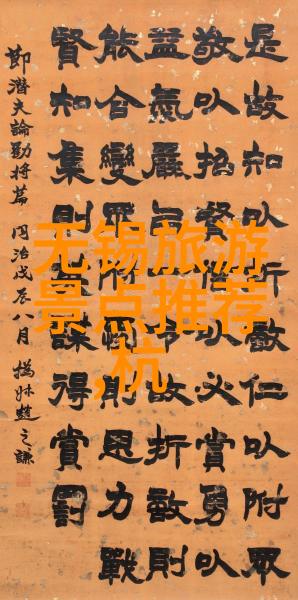 是故知以折敵仁以附眾
敬以招賢信以必賞勇以
益氣嚴以一令故折敵則
能合變眾附則思力戰
賢知集則謀得賞罰
節潛夫論勸將篇 同治戊辰八月 撝叔趙之謙
无锡旅游
景点推荐
,杭